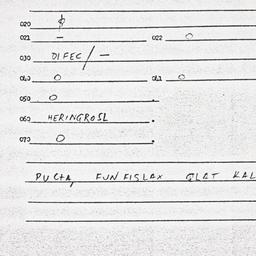 020 ϕ
021 – 022 0
030 DIFEC/–
040 0 041 0
050 0.
060 HERINGROSL.
070 0.
PUCHA, FUNFISLAX GLAT KAL